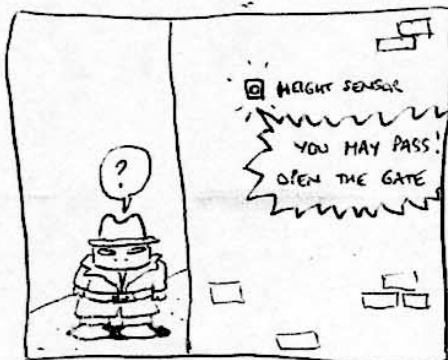 ?
HEIGHT SENSOR
YOU MAY PASS!
OPEN THE GATE